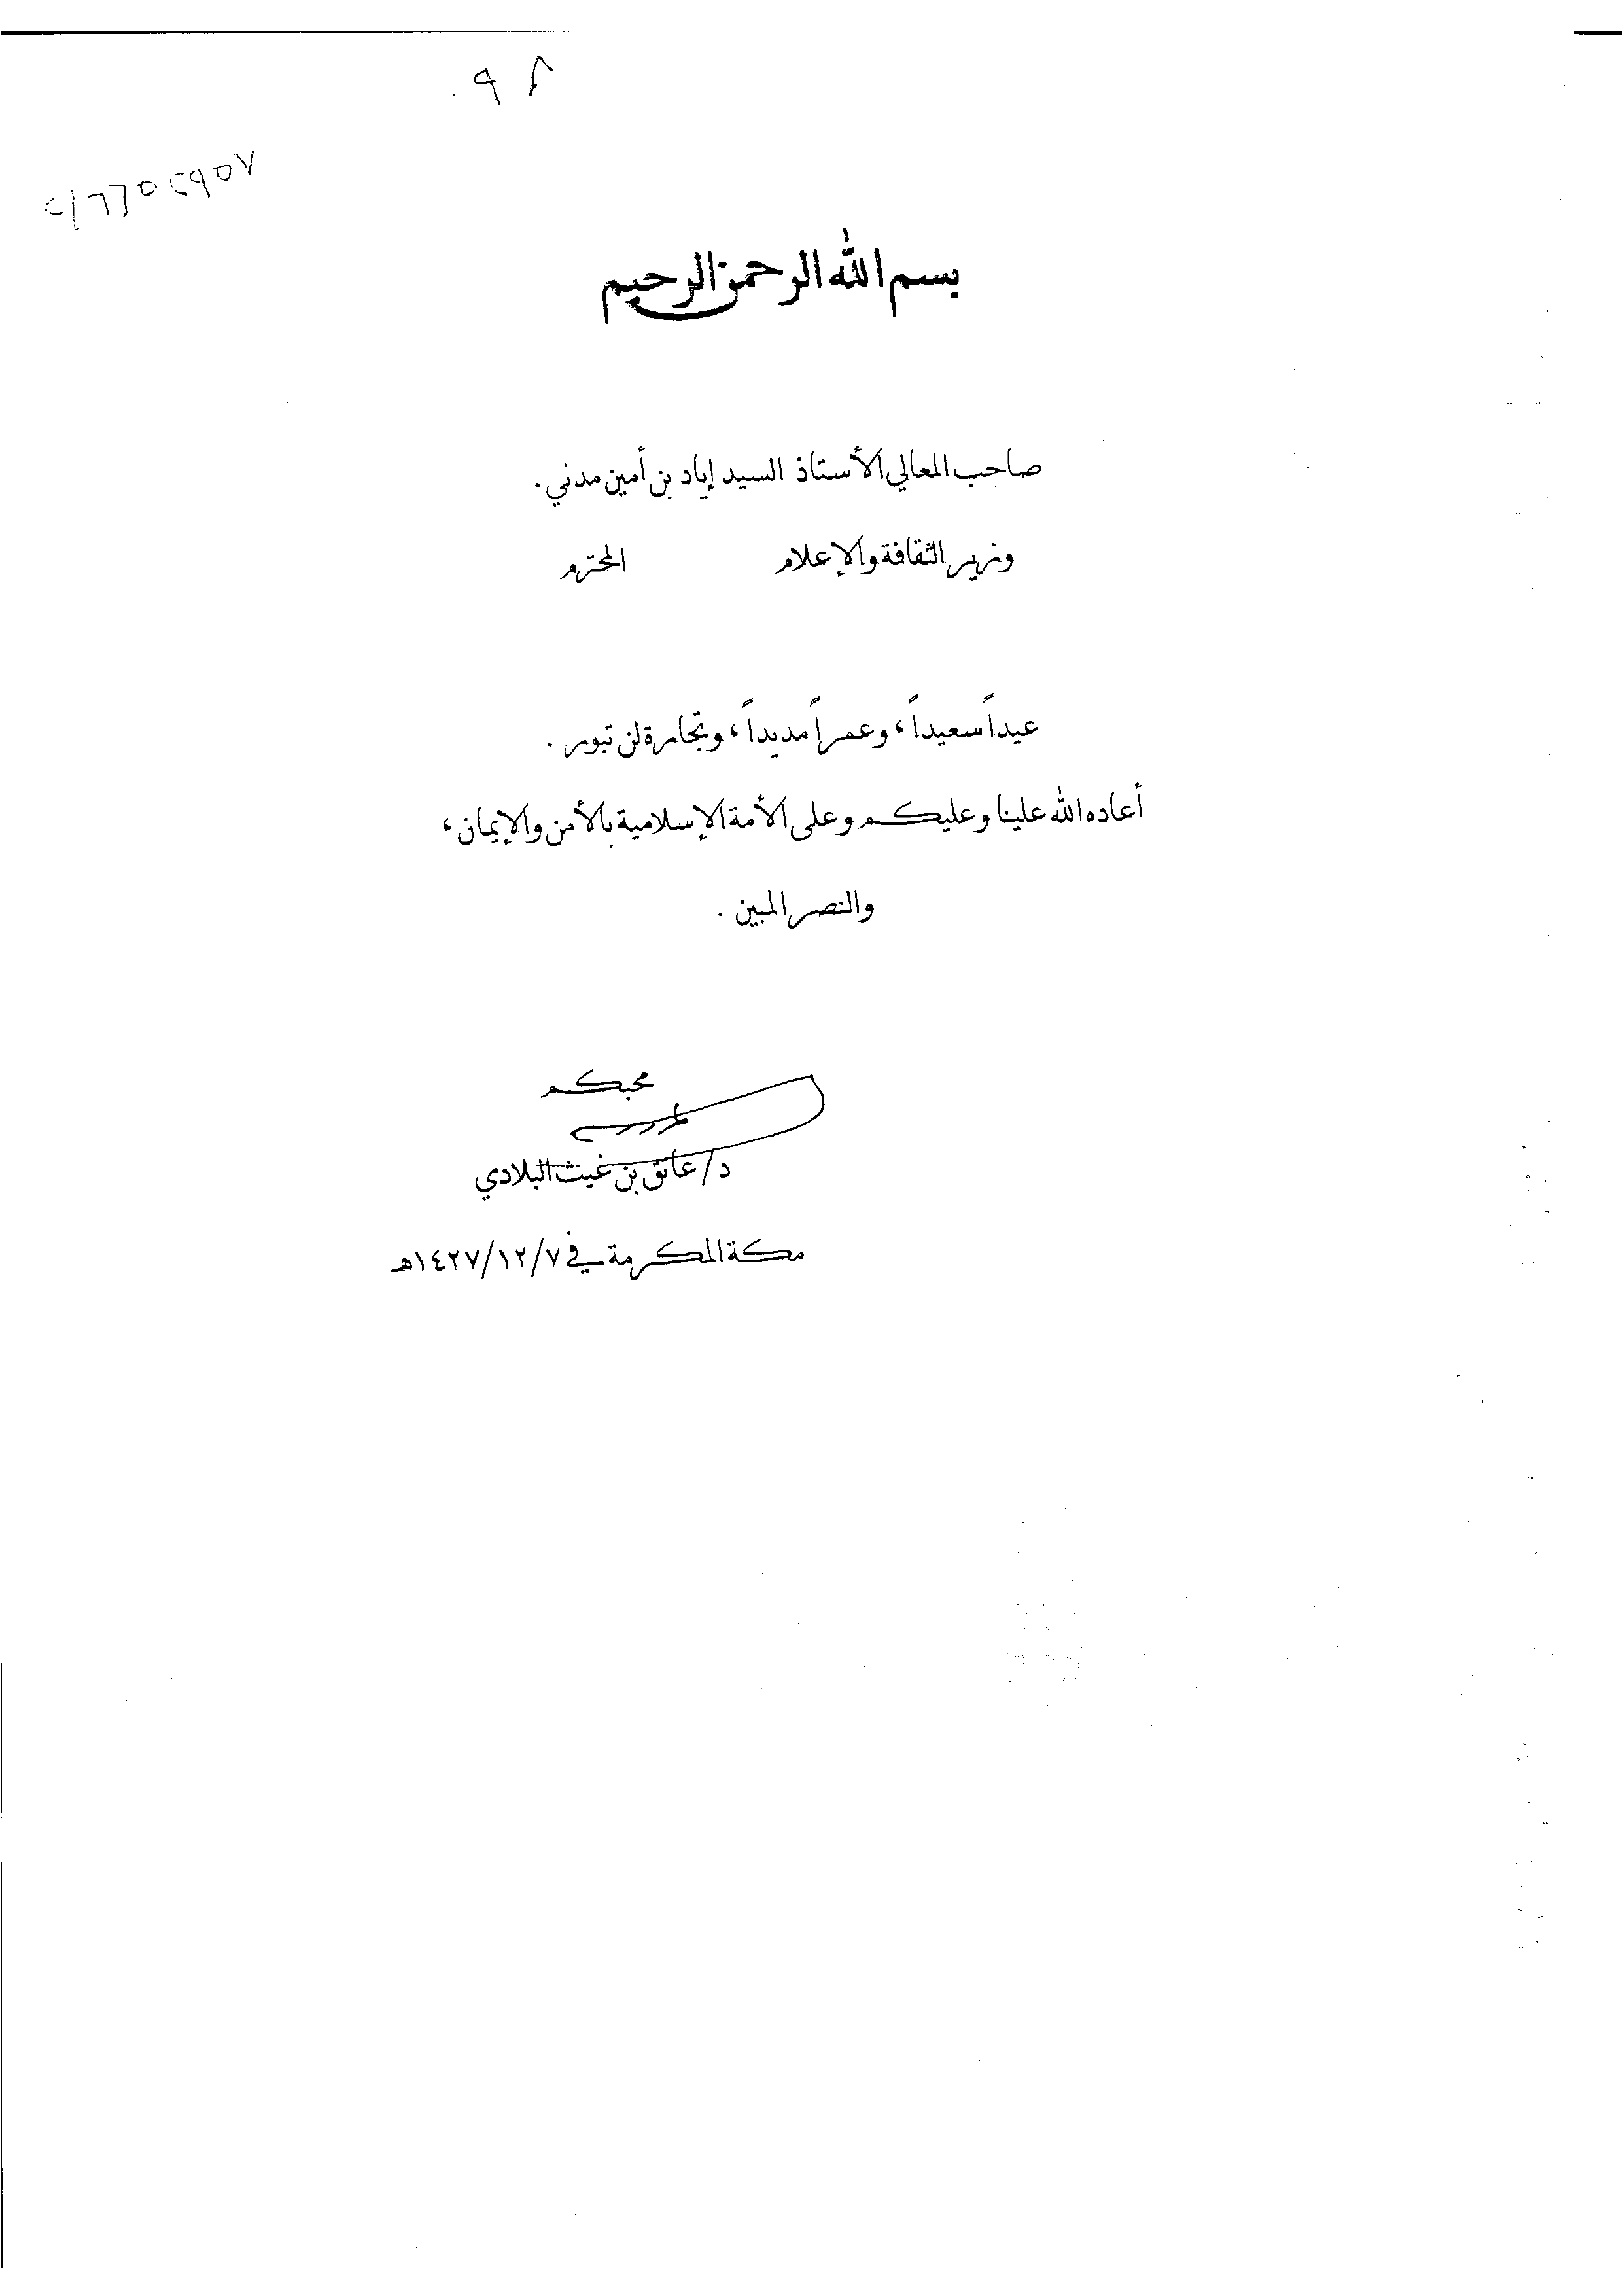 بسم الله الرحمن الرحيم
صاحب المعالي الأستاذ السيد إياد بن أمين مدني.
وزير الثقافة والإعلام المحترم
عيداً سعيداً، وعمراً مديداً، وتجارة لن تبور.
أعاده الله علينا وعليكم وعلى الأمة الإسلامية بالأمن والإيمان،
والنصر المبين.
محبكم
د/ عاتق بن غيث البلادي
مكة المكرمة في ١٤٢٧/١٢/٧هـ